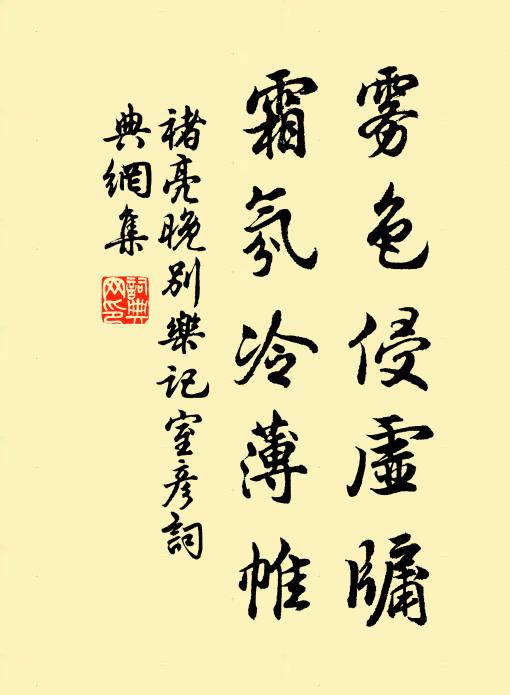 雾色侵虚牖
霜氛冷薄帷
褚亮晚别樂记室彦詞
典網集
詞典网印